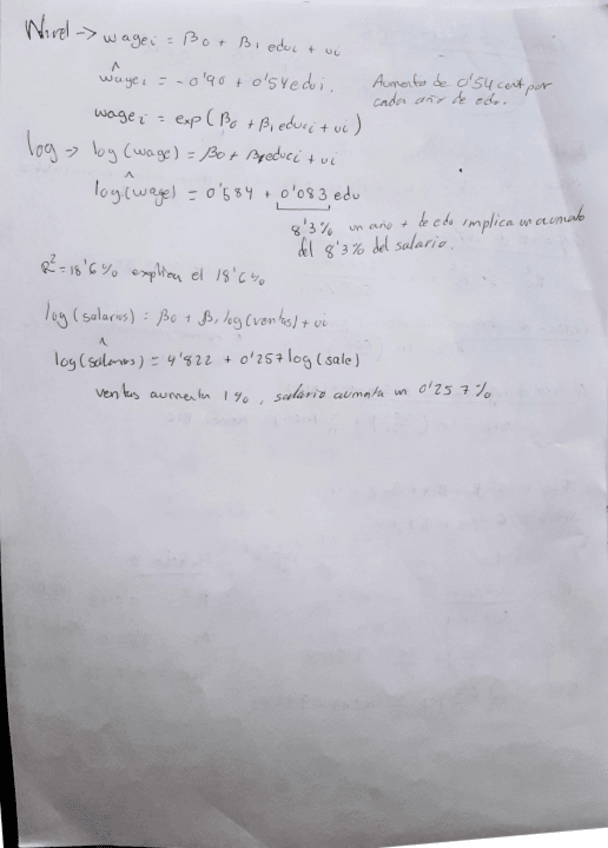 Nivel -> wage i = β0 + β1 educ i + ui
ŵage i = - 0'90 + 0'54 edu i. Aumento de 0'54 cent por
cada año de edu.
wage i = exp (β0 + β1 educ i + ui)
log => log (wage) = β0 + β1 educ i + ui
log(wage)^ = 0'584 + 0'083 edu
8'3% un año + de edu implica un aumento
del 8'3% del salario.
R² = 18'6% explica el 18'6%
log (salarios) = β0 + β1 log (ventas) + ui
log (salarios)^ = 4'822 + 0'257 log (sale)
ventas aumenta 1%, salario aumenta un 0'257%